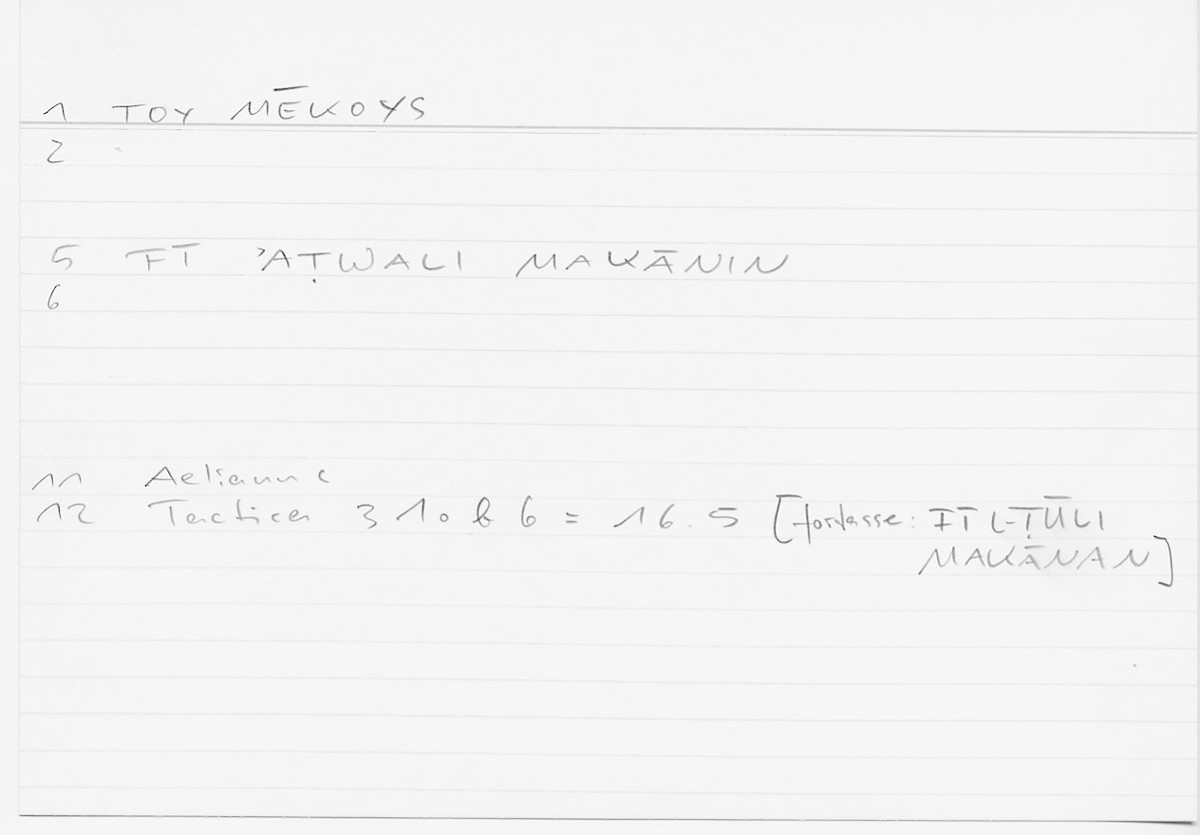 1 TOY MĒKOYS
2
5 FĪ 'AṬWALI MAKĀNIN
6
11 Aelianus
12 Tactica 310b6 = 16.5 [fortasse: FĪ L-ṬŪLI
MAKĀNAN]